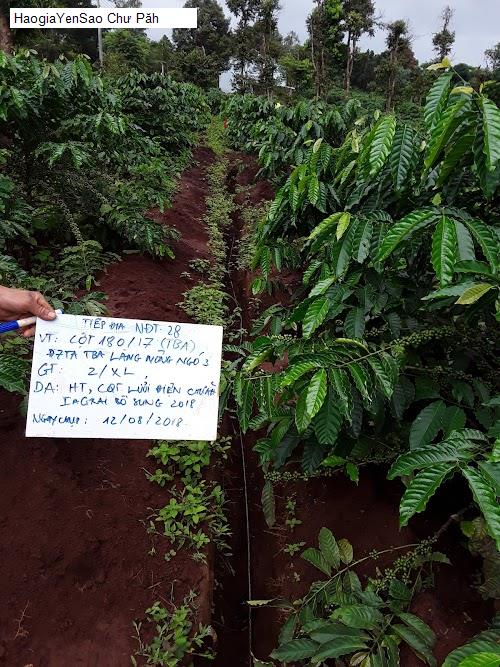 HaogiaYenSao Chư Păh
TIẾP ĐỊA NĐT-28
VT: CỘT 180/17 (TBA)
ĐZTA TBA LÀNG MÔNG NGÓ 3
GT: 2/XL
DA: HT, CQT LƯỚI ĐIỆN
IAGRAI BỔ SUNG 2018
NGÀY CHỤP: 12/08/2018